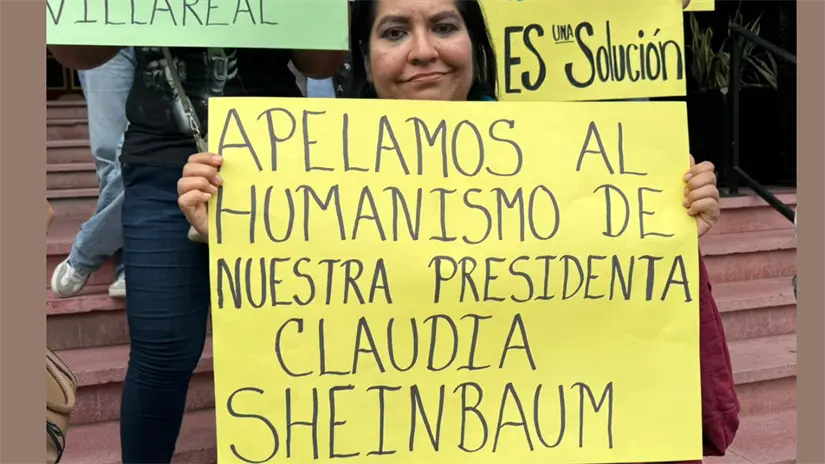 VILLAREAL
ES UNA Solución
APELAMOS AL
HUMANISMO DE
NUESTRA PRESIDENTA
CLAUDIA
SHEINBAUM